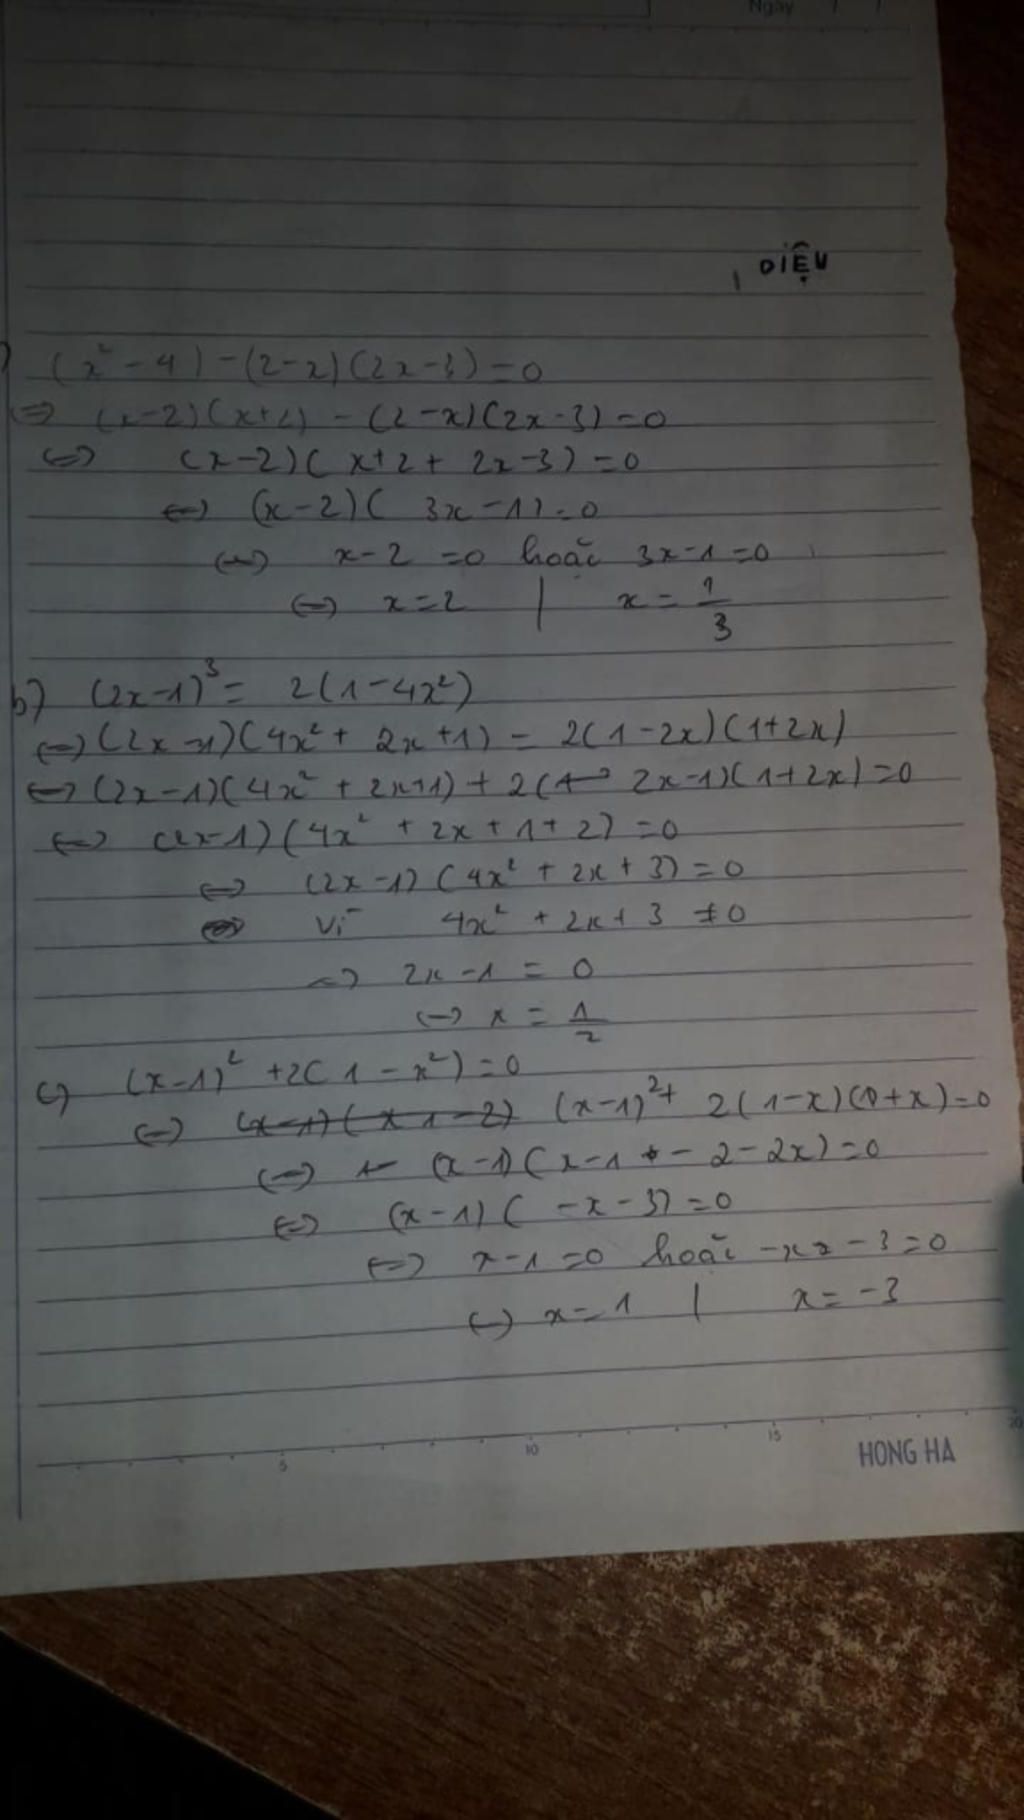 Ngày / /
DIỆU
) (x² - 4) - (2-x)(2x-3) = 0
⇔ (x-2)(x+2) - (2-x)(2x-3) = 0
⇔ (x-2)(x+2+2x-3) = 0
⇔ (x-2)(3x-1) = 0
⇔ x-2 = 0 hoặc 3x-1 = 0
⇔ x = 2 | x = 1/3
b) (2x-1)³ = 2(1-4x²)
⇔ (2x-1)(4x² + 2x + 1) = 2(1-2x)(1+2x)
⇔ (2x-1)(4x² + 2x+1) + 2(2x-1)(1+2x) = 0
⇔ (2x-1)(4x² + 2x + 1 + 2) = 0
⇔ (2x-1)(4x² + 2x + 3) = 0
Vì 4x² + 2x + 3 ≠ 0
⇔ 2x - 1 = 0
⇔ x = 1/2
c) (x-1)² + 2(1-x²) = 0
⇔ (x-1)(x 1-2) (x-1)² + 2(1-x)(1+x) = 0
⇔ (x-1)(x-1 - 2-2x) = 0
⇔ (x-1)(-x-3) = 0
⇔ x-1 = 0 hoặc -x - 3 = 0
⇔ x = 1 | x = -3
5 10 15 20
HONG HA